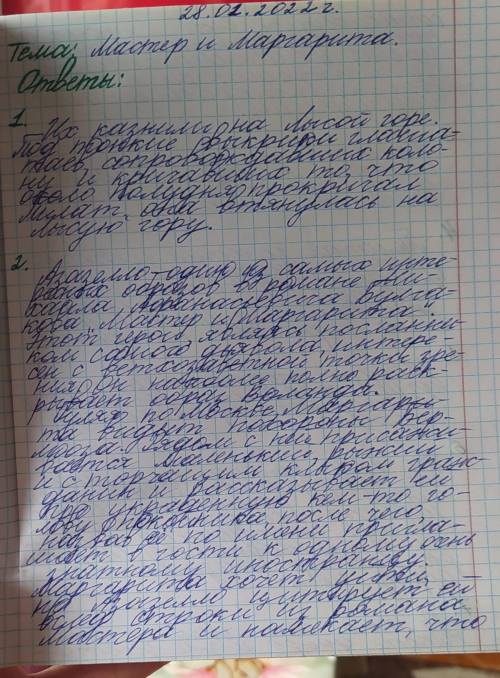 28.01.2022г.
Тема: Мастер и Маргарита.
Ответы:
1. Их казнили на Лысой горе.
Под тонкие выкрики глаша-
таев, сопровождавших колон-
ну и кричавших то, что
около полудня прокричал
Пилат, она втянулась на
Лысую гору.
2. Азазелло - один из самых инте-
ресных образов в романе Ми-
хаила Афанасьевича Булга-
кова "Мастер и Маргарита".
Этот герой являясь посланни-
ком самого дьявола, интере-
сен с ветхозаветной точки зре-
ния, он наиболее полно раск-
рывает образ Воланда.
Гуляя по Москве, Маргари-
та видит похороны Бер-
лиоза. Рядом с ней присажи-
вается маленький, рыжий
и с торчащим клыком граж-
данин и рассказывает ей
про украденную кем-то го-
лову покойника, после чего
назвав её по имени пригла-
шает в гости к одному очень
знатному иностранцу.
Маргарита хочет уйти,
но Азазелло цитирует ей
вслед строки из романа
Мастера и намекает, что